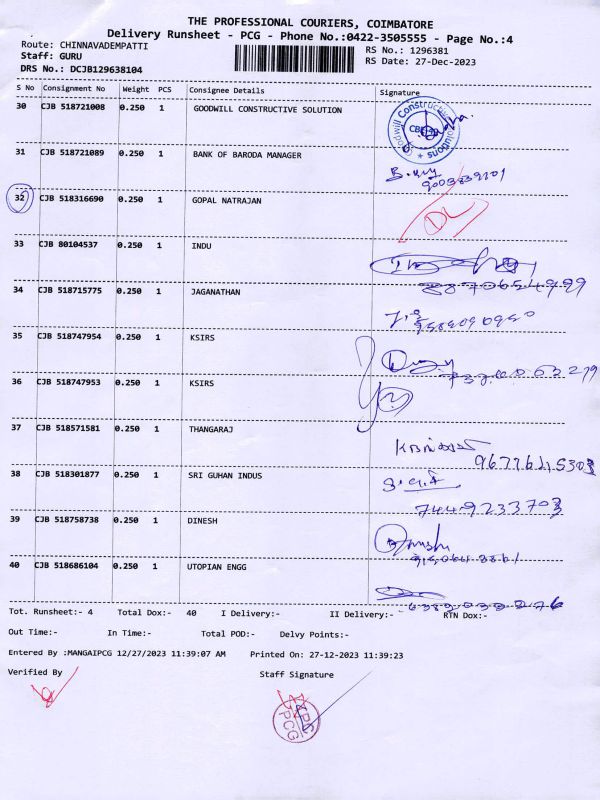 THE PROFESSIONAL COURIERS, COIMBATORE
Delivery Runsheet - PCG - Phone No.:0422-3505555 - Page No.:4
Route: CHINNAVADEMPATTI RS No.: 1296381
Staff: GURU RS Date: 27-Dec-2023
DRS No.: DCJB129638104
S No Consignment No Weight PCS Consignee Details Signature
30 CJB 518721008 0.250 1 GOODWILL CONSTRUCTIVE SOLUTION
31 CJB 518721089 0.250 1 BANK OF BARODA MANAGER
32 CJB 518316690 0.250 1 GOPAL NATRAJAN DL
33 CJB 80104537 0.250 1 INDU
34 CJB 518715775 0.250 1 JAGANATHAN
35 CJB 518747954 0.250 1 KSIRS
36 CJB 518747953 0.250 1 KSIRS
37 CJB 518571581 0.250 1 THANGARAJ
38 CJB 518301877 0.250 1 SRI GUHAN INDUS
7449233703
39 CJB 518758738 0.250 1 DINESH
40 CJB 518686104 0.250 1 UTOPIAN ENGG
Tot. Runsheet:- 4 Total Dox:- 40 I Delivery:- II Delivery:- RTN Dox:-
Out Time:- In Time:- Total POD:- Delvy Points:-
Entered By :MANGAIPCG 12/27/2023 11:39:07 AM Printed On: 27-12-2023 11:39:23
Verified By Staff Signature